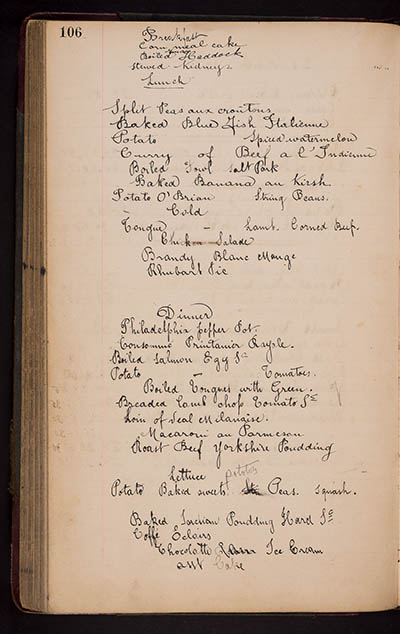 106
Breakfast
Corn meal cake
Boiled Haddock
Stewed Kidneys
Lunch
Split Peas aux croutons
Baked Blue Fish Italienne
Potato Spiced watermelon
Curry of Beef a l'Indienne
Boiled Fowl Salt Pork
Baked Banana au Kirsh
Potato O'Brian String Beans.
Cold
Tongue - Lamb. Corned Beef.
Chicken Salade
Brandy Blanc Monge
Rhubart Pie
Dinner
Philadelphia Pepper Pot.
Consomme Printanier Royale.
Boiled Salmon Egg Sce
Potato - Tomatoes.
Boiled Tongues with Green.
Breaded Lamb chop Tomato Sce
Loin of Veal Milanaise.
Macaroni au Parmesan
Roast Beef Yorkshire Poudding
Lettuce
potatos
Potato Baked sweet Peas. Squash.
Baked Indian Poudding Hard Sce
Coffe Eclairs
Chocolatte Ice Cream
asst Cake